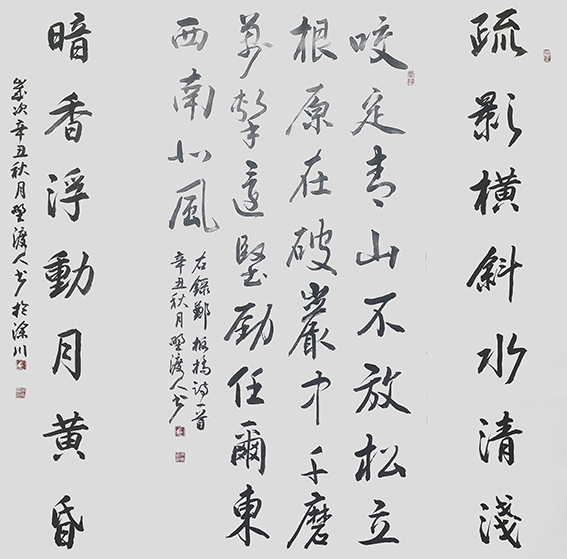 疏影橫斜水清淺
咬定青山不放松立
根原在破巖中千磨
萬擊還堅勁任爾東
西南北風
右錄鄭板橋詩一首
辛丑秋月埜渡人書
暗香浮動月黃昏
歲次辛丑秋月埜渡人書於深川